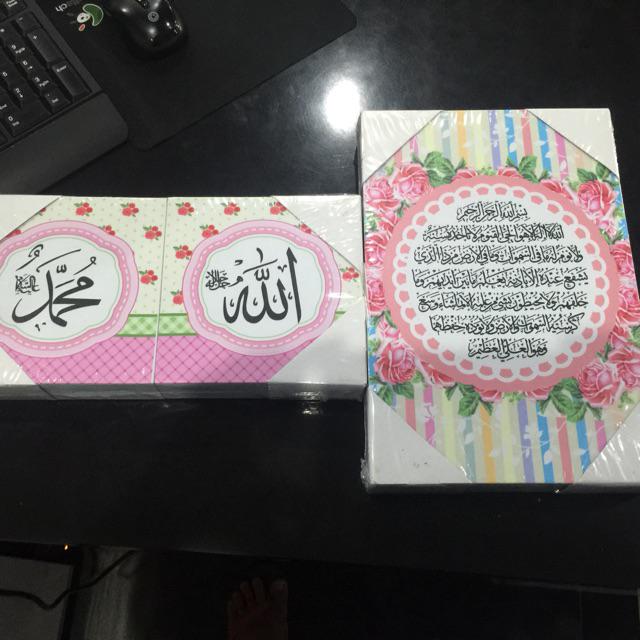 محمد
الله
جل جلاله
بسم الله الرحمن الرحيم
الله لا إله إلا هو الحي القيوم لا تأخذه سنة
ولا نوم له ما في السموات وما في الأرض من ذا الذي
يشفع عنده إلا بإذنه يعلم ما بين أيديهم وما
خلفهم ولا يحيطون بشيء من علمه إلا بما شاء وسع
كرسيه السموات والأرض ولا يؤده حفظهما
وهو العلي العظيم